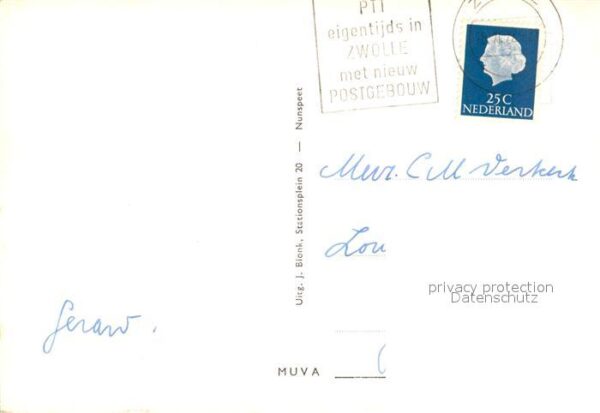 PTT
eigentijds in
ZWOLLE
met nieuw
POSTGEBOUW
25C
NEDERLAND
Uitg. J. Blonk, Stationsplein 20 — Nunspeet
Mevr. C M Verkerk
Lou
privacy protection
Datenschutz
Gerard.
MUVA